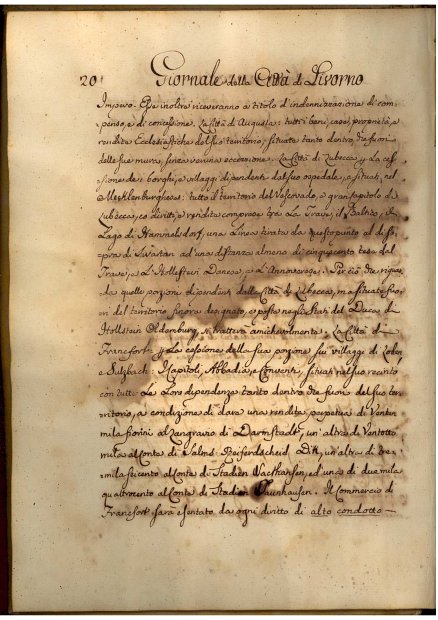 20 Giornale della Città di Livorno
Impero. Esse inoltre riceveranno a titolo d'indennizazione di com-
penso, e di concessione. La Città di Augusta: tutti i beni, case, proprietà, e
rendite Ecclesiastiche del suo territorio, situate tanto dentro, che fuori
delle sue mura, senza veruna eccezione. La Città di Lubecca; La ces-
sione de i borghi, e villaggi dipendenti dal suo ospedale, e situati nel
Mecklenburghese: tutto il territorio del Vescovado, e gran capitolo di
Lubecca, coi diritti, e rendite comprese tra La Trave, il Baltico, il
Lago di Hammelsdorf, una Linea tirata da questo punto al di so-
pra di Swartan ad una distanza almeno di cinquecento tese dal
Trave, e L'Hollestein Danese, e L'Annoverese. Per ciò che riguar-
da quelle porzioni dipendenti dalla Città di Lubecca, ma situate fuo-
ri del territorio sinora designato, e poste negli Stati del Duca di
Hollstein Oldenburg, si tratterà amichevolmente. La Città di
Francfort; La cessione della sua porzione su' villaggi di Soden
e Sulzbach: I Capitoli, Abbadia, e Conventi, situati nel suo recinto
con tutte Le Loro dipendenze tanto dentro che fuori del suo ter-
ritorio, a condizione di dare una rendita perpetua di Venti
mila fiorini al Langravio di Darmstadt, un'altra di Ventotto
mila al Conte di Salms Reiferdscheid Dik, un'altra di tre-
mila seicento al Conte di Stadien Warthausen, ed una di due mila
quattrocento al Conte di Stadien Tanhausen. Il Commercio di
Francfort sarà esentato da ogni diritto di alto condotto